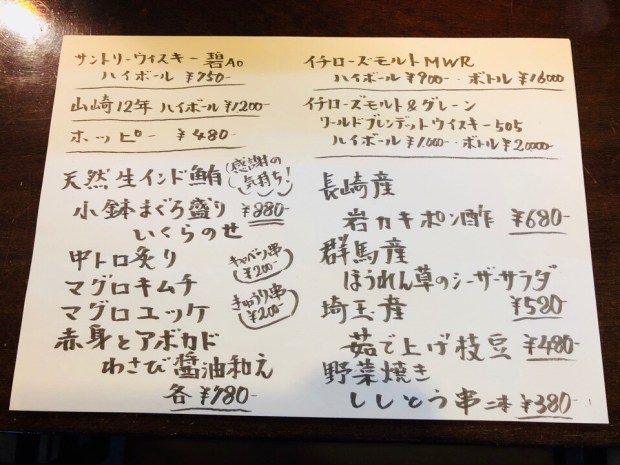 サントリーウィスキー 碧Ao
ハイボール ¥750-
山崎12年 ハイボール ¥1200-
ホッピー ¥480-
天然生インド鮪
感謝の
気持ち!
小鉢まぐろ盛り ¥880-
いくらのせ
中トロ炙り
キャベツ串
¥200-
マグロキムチ
マグロユッケ
きゅうり串
¥200-
赤身とアボカド
わさび醤油和え
各 ¥780-
イチローズモルトMWR
ハイボール ¥900-・ボトル ¥16000
イチローズモルト&グレーン
ワールドブレンデットウイスキー505
ハイボール ¥1000-・ボトル ¥20000-
長崎産
岩カキポン酢 ¥680-
群馬産
ほうれん草のシーザーサラダ
¥580-
埼玉産
茹で上げ枝豆 ¥480-
野菜焼き
ししとう串 二本 ¥380-